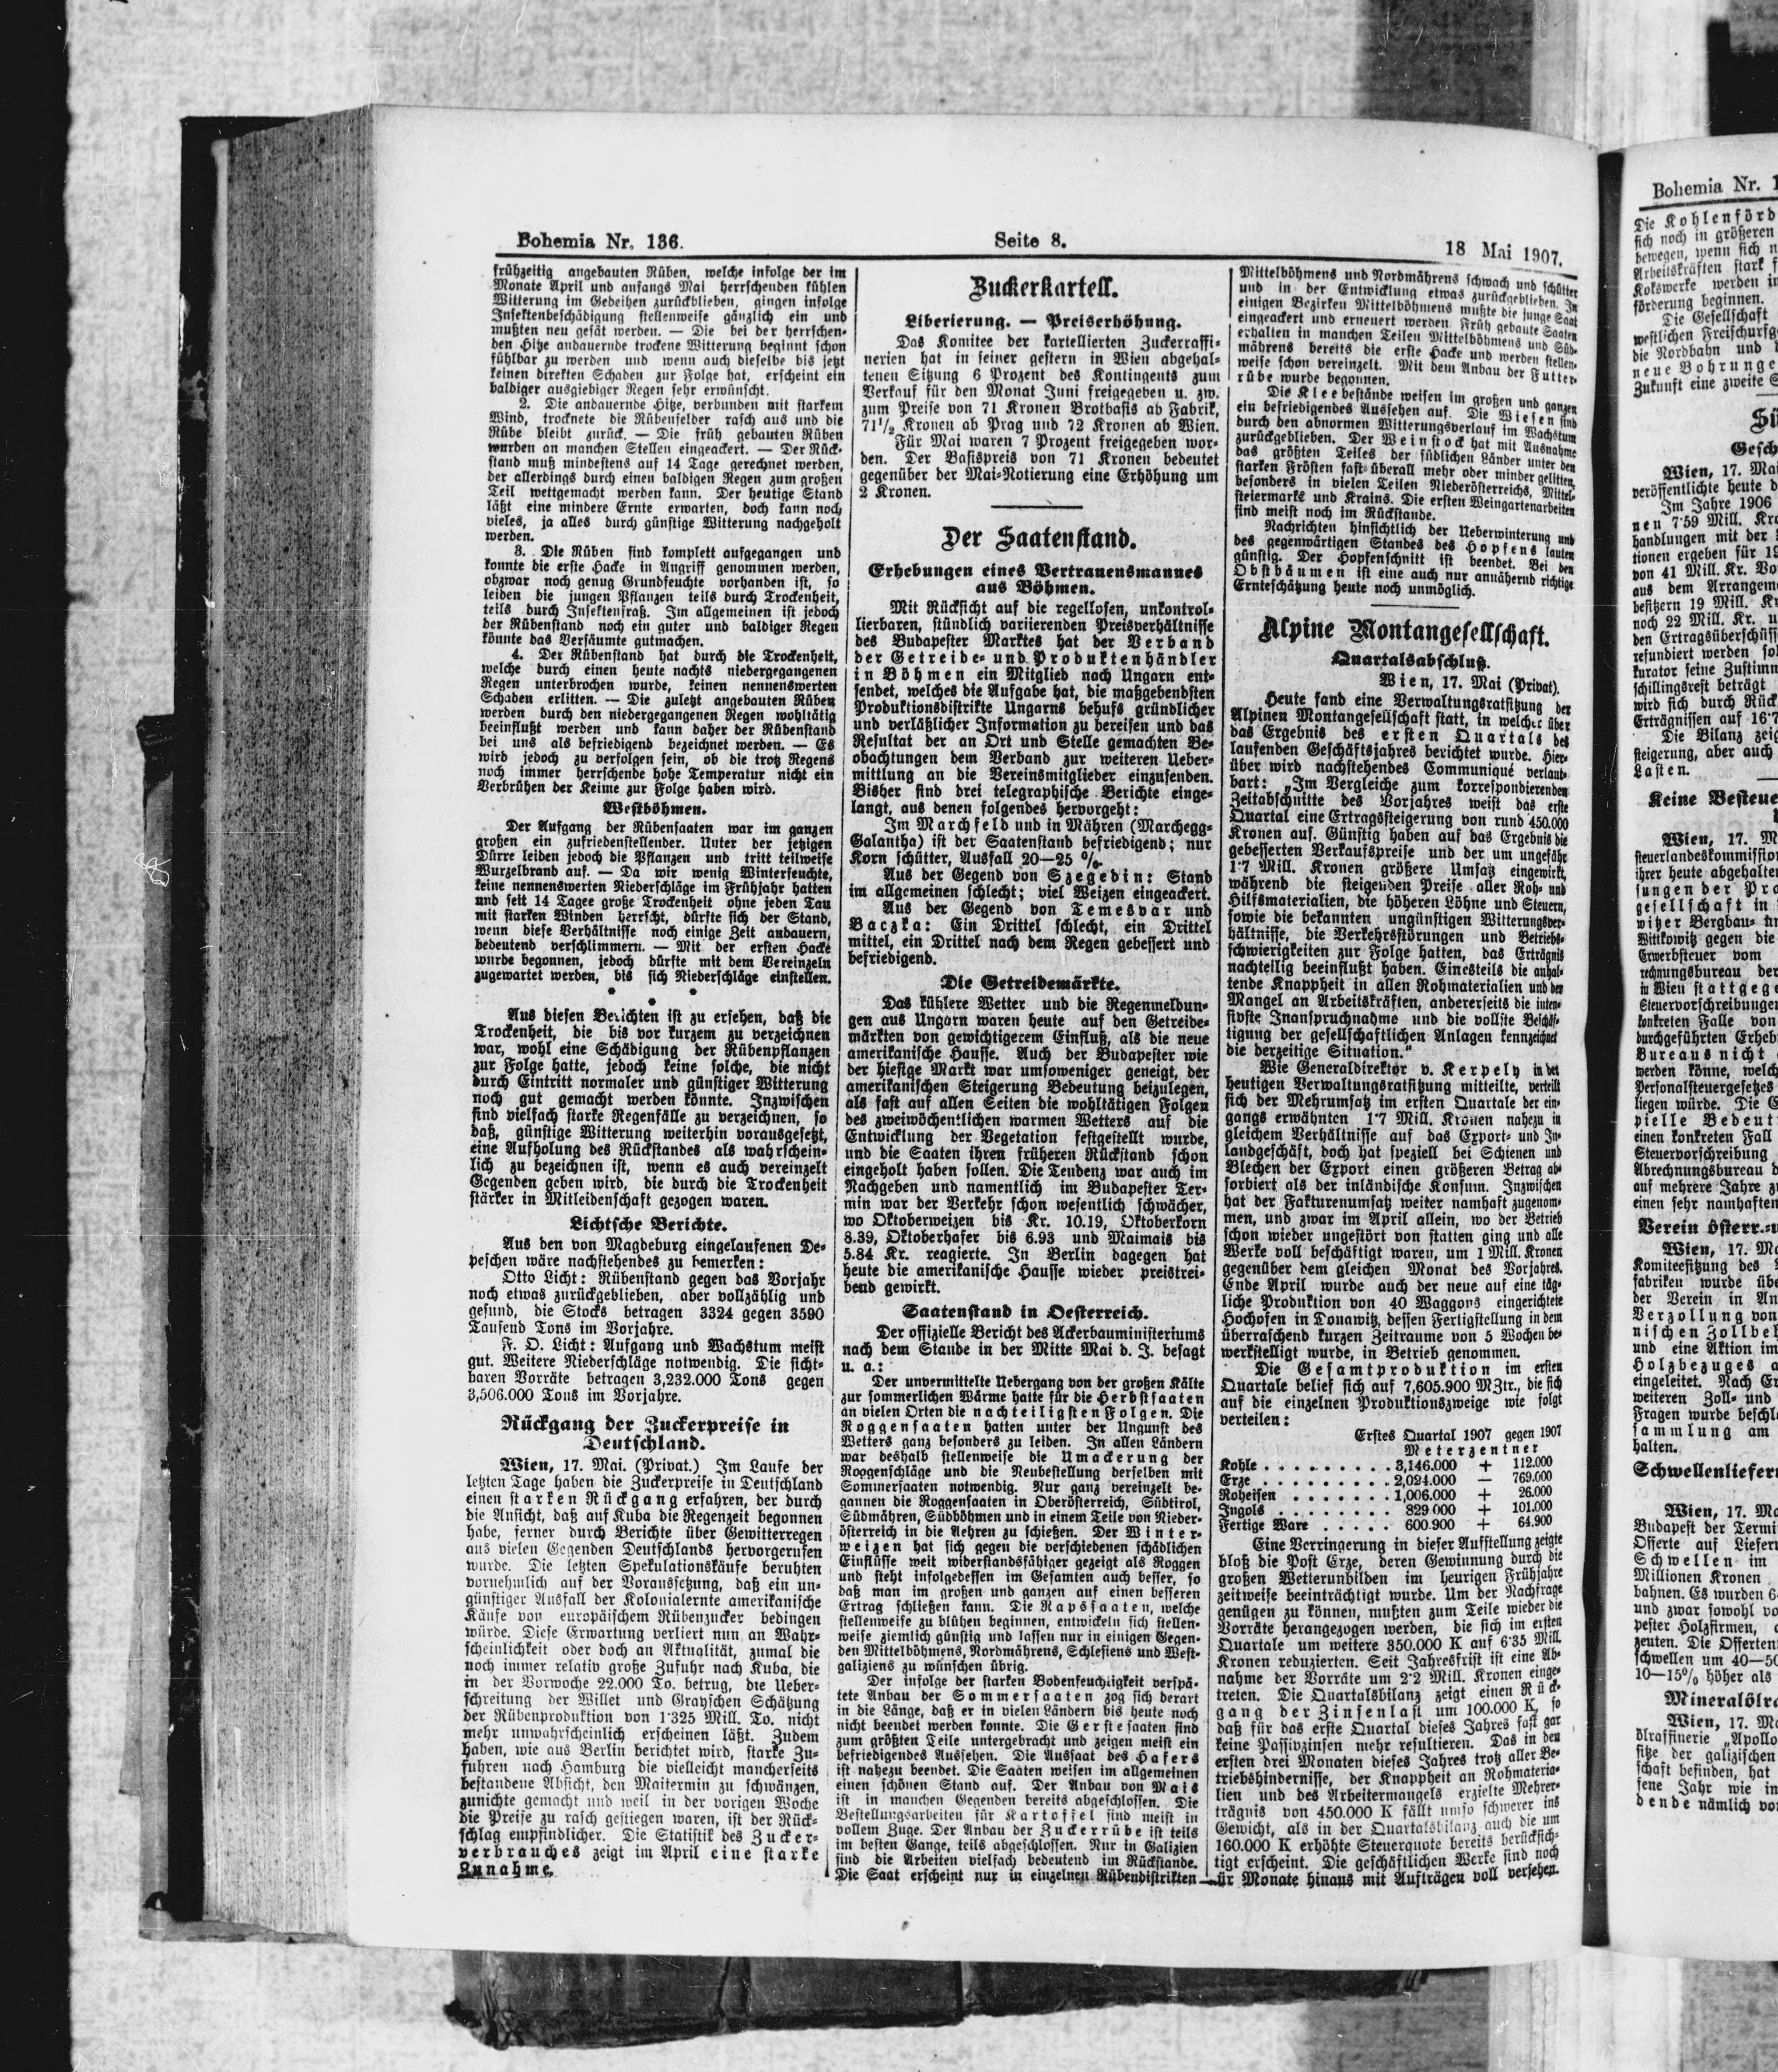 Bohemia Nr. 136.
Seite 8.
18 Mai 1907.
frühzeitig angebauten Rüben, welche infolge der im
Monate April und anfangs Mai herrschenden kühlen
Witterung im Gedeihen zurückblieben, gingen infolge
Insektenbeschädigung stellenweise gänzlich ein und
mußten neu gesät werden. — Die bei der herrschen-
den Hitze andauernde trockene Witterung beginnt schon
fühlbar zu werden und wenn auch dieselbe bis jetzt
keinen direkten Schaden zur Folge hat, erscheint ein
baldiger ausgiebiger Regen sehr erwünscht.
2. Die andauernde Hitze, verbunden mit starkem
Wind, trocknete die Rübenfelder rasch aus und die
Rübe bleibt zurück. — Die früh gebauten Rüben
wurden an manchen Stellen eingeackert. — Der Rück-
stand muß mindestens auf 14 Tage gerechnet werden,
der allerdings durch einen baldigen Regen zum großen
Teil wettgemacht werden kann. Der heutige Stand
läßt eine mindere Ernte erwarten, doch kann noch
vieles, ja alles durch günstige Witterung nachgeholt
werden.
3. Die Rüben sind komplett aufgegangen und
konnte die erste Hacke in Angriff genommen werden,
obzwar noch genug Grundfeuchte vorhanden ist, so
leiden die jungen Pflanzen teils durch Trockenheit,
teils durch Insektenfraß. Im allgemeinen ist jedoch
der Rübenstand noch ein guter und baldiger Regen
könnte das Versäumte gutmachen.
4. Der Rübenstand hat durch die Trockenheit,
welche durch einen heute nachts niedergegangenen
Regen unterbrochen wurde, keinen nennenswerten
Schaden erlitten. — Die zuletzt angebauten Rüben
werden durch den niedergegangenen Regen wohltätig
beeinflußt werden und kann daher der Rübenstand
bei uns als befriedigend bezeichnet werden. — Es
wird jedoch zu verfolgen sein, ob die trotz Regens
noch immer herrschende hohe Temperatur nicht ein
Verbrühen der Keime zur Folge haben wird.
Westböhmen.
Der Aufgang der Rübensaaten war im ganzen
großen ein zufriedenstellender. Unter der jetzigen
Dürre leiden jedoch die Pflanzen und tritt teilweise
Wurzelbrand auf. — Da wir wenig Winterfeuchte,
keine nennenswerten Niederschläge im Frühjahr hatten
und seit 14 Tagee große Trockenheit ohne jeden Tau
mit starken Winden herrscht, dürfte sich der Stand,
wenn diese Verhältnisse noch einige Zeit andauern,
bedeutend verschlimmern. — Mit der ersten Hacke
wurde begonnen, jedoch dürfte mit dem Vereinzeln
zugewartet werden, bis sich Niederschläge einstellen.
* * *
Aus diesen Berichten ist zu ersehen, daß die
Trockenheit, die bis vor kurzem zu verzeichnen
war, wohl eine Schädigung der Rübenpflanzen
zur Folge hatte, jedoch keine solche, die nicht
durch Eintritt normaler und günstiger Witterung
noch gut gemacht werden könnte. Inzwischen
sind vielfach starke Regenfälle zu verzeichnen, so
daß, günstige Witterung weiterhin vorausgesetzt,
eine Aufholung des Rückstandes als wahrschein-
lich zu bezeichnen ist, wenn es auch vereinzelt
Gegenden geben wird, die durch die Trockenheit
stärker in Mitleidenschaft gezogen waren.
Lichtsche Berichte.
Aus den von Magdeburg eingelaufenen De-
peschen wäre nachstehendes zu bemerken:
Otto Licht: Rübenstand gegen das Vorjahr
noch etwas zurückgeblieben, aber vollzählig und
gesund, die Stocks betragen 3324 gegen 3590
Tausend Tons im Vorjahre.
F. O. Licht: Aufgang und Wachstum meist
gut. Weitere Niederschläge notwendig. Die sicht-
baren Vorräte betragen 3,232.000 Tons gegen
3,506.000 Tons im Vorjahre.
Rückgang der Zuckerpreise in
Deutschland.
Wien, 17. Mai. (Privat.) Im Laufe der
letzten Tage haben die Zuckerpreise in Deutschland
einen starken Rückgang erfahren, der durch
die Ansicht, daß auf Kuba die Regenzeit begonnen
habe, ferner durch Berichte über Gewitterregen
aus vielen Gegenden Deutschlands hervorgerufen
wurde. Die letzten Spekulationskäufe beruhten
vornehmlich auf der Voraussetzung, daß ein un-
günstiger Ausfall der Kolonialernte amerikanische
Käufe von europäischem Rübenzucker bedingen
würde. Diese Erwartung verliert nun an Wahr-
scheinlichkeit oder doch an Aktualität, zumal die
noch immer relativ große Zufuhr nach Kuba, die
in der Vorwoche 22.000 To. betrug, die Ueber-
schreitung der Willet und Grayschen Schätzung
der Rübenproduktion von 1·325 Mill. To. nicht
mehr unwahrscheinlich erscheinen läßt. Zudem
haben, wie aus Berlin berichtet wird, starke Zu-
fuhren nach Hamburg die vielleicht mancherseits
bestandene Absicht, den Maitermin zu schwänzen,
zunichte gemacht und weil in der vorigen Woche
die Preise zu rasch gestiegen waren, ist der Rück-
schlag empfindlicher. Die Statistik des Zucker-
verbrauches zeigt im April eine starke
Zunahme.
Zuckerkartell.
Liberierung. — Preiserhöhung.
Das Komitee der kartellierten Zuckerraffi-
nerien hat in seiner gestern in Wien abgehal-
tenen Sitzung 6 Prozent des Kontingents zum
Verkauf für den Monat Juni freigegeben u. zw.
zum Preise von 71 Kronen Brotbasis ab Fabrik,
71 1/2 Kronen ab Prag und 72 Kronen ab Wien.
Für Mai waren 7 Prozent freigegeben wor-
den. Der Basispreis von 71 Kronen bedeutet
gegenüber der Mai-Notierung eine Erhöhung um
2 Kronen.
Der Saatenstand.
Erhebungen eines Vertrauensmannes
aus Böhmen.
Mit Rücksicht auf die regellosen, unkontrol-
lierbaren, stündlich variierenden Preisverhältnisse
des Budapester Marktes hat der Verband
der Getreide- und Produktenhändler
in Böhmen ein Mitglied nach Ungarn ent-
sendet, welches die Aufgabe hat, die maßgebendsten
Produktionsdistrikte Ungarns behufs gründlicher
und verläßlicher Information zu bereisen und das
Resultat der an Ort und Stelle gemachten Be-
obachtungen dem Verband zur weiteren Ueber-
mittlung an die Vereinsmitglieder einzusenden.
Bisher sind drei telegraphische Berichte einge-
langt, aus denen folgendes hervorgeht:
Im Marchfeld und in Mähren (Marchegg-
Galantha) ist der Saatenstand befriedigend; nur
Korn schütter, Ausfall 20—25 %.
Aus der Gegend von Szegedin: Stand
im allgemeinen schlecht; viel Weizen eingeackert.
Aus der Gegend von Temesvar und
Baczka: Ein Drittel schlecht, ein Drittel
mittel, ein Drittel nach dem Regen gebessert und
befriedigend.
Die Getreidemärkte.
Das kühlere Wetter und die Regenmeldun-
gen aus Ungarn waren heute auf den Getreide-
märkten von gewichtigerem Einfluß, als die neue
amerikanische Hausse. Auch der Budapester wie
der hiesige Markt war umsoweniger geneigt, der
amerikanischen Steigerung Bedeutung beizulegen,
als fast auf allen Seiten die wohltätigen Folgen
des zweiwöchentlichen warmen Wetters auf die
Entwicklung der Vegetation festgestellt wurde,
und die Saaten ihren früheren Rückstand schon
eingeholt haben sollen. Die Tendenz war auch im
Nachgeben und namentlich im Budapester Ter-
min war der Verkehr schon wesentlich schwächer,
wo Oktoberweizen bis Kr. 10.19, Oktoberkorn
8.39, Oktoberhafer bis 6.93 und Maimais bis
5.84 Kr. reagierte. In Berlin dagegen hat
heute die amerikanische Hausse wieder preistrei-
bend gewirkt.
Saatenstand in Oesterreich.
Der offizielle Bericht des Ackerbauministeriums
nach dem Stande in der Mitte Mai d. J. besagt
u. a.:
Der unvermittelte Uebergang von der großen Kälte
zur sommerlichen Wärme hatte für die Herbstsaaten
an vielen Orten die nachteiligsten Folgen. Die
Roggensaaten hatten unter der Ungunst des
Wetters ganz besonders zu leiden. In allen Ländern
war deshalb stellenweise die Umackerung der
Roggenschläge und die Neubestellung derselben mit
Sommersaaten notwendig. Nur ganz vereinzelt be-
gannen die Roggensaaten in Oberösterreich, Südtirol,
Südmähren, Südböhmen und in einem Teile von Nieder-
österreich in die Aehren zu schießen. Der Winter-
weizen hat sich gegen die verschiedenen schädlichen
Einflüsse weit widerstandsfähiger gezeigt als Roggen
und steht infolgedessen im Gesamten auch besser, so
daß man im großen und ganzen auf einen besseren
Ertrag schließen kann. Die Rapssaaten, welche
stellenweise zu blühen beginnen, entwickeln sich stellen-
weise ziemlich günstig und lassen nur in einigen Gegen-
den Mittelböhmens, Nordmährens, Schlesiens und West-
galiziens zu wünschen übrig.
Der infolge der starken Bodenfeuchtigkeit verspä-
tete Anbau der Sommersaaten zog sich derart
in die Länge, daß er in vielen Ländern bis heute noch
nicht beendet werden konnte. Die Gerstesaaten sind
zum größten Teile untergebracht und zeigen meist ein
befriedigendes Aussehen. Die Aussaat des Hafers
ist nahezu beendet. Die Saaten weisen im allgemeinen
einen schönen Stand auf. Der Anbau von Mais
ist in manchen Gegenden bereits abgeschlossen. Die
Bestellungsarbeiten für Kartoffel sind meist in
vollem Zuge. Der Anbau der Zuckerrübe ist teils
im besten Gange, teils abgeschlossen. Nur in Galizien
sind die Arbeiten vielfach bedeutend im Rückstande.
Die Saat erscheint nur in einzelnen Rübendistrikten
Mittelböhmens und Nordmährens schwach und schütter
und in der Entwicklung etwas zurückgeblieben. In
einigen Bezirken Mittelböhmens mußte die junge Saat
eingeackert und erneuert werden Früh gebaute Saaten
erhalten in manchen Teilen Mittelböhmens und Süd-
mährens bereits die erste Hacke und werden stellen-
weise schon vereinzelt. Mit dem Anbau der Futter-
rübe wurde begonnen.
Die Kleebestände weisen im großen und ganzen
ein befriedigendes Aussehen auf. Die Wiesen sind
durch den abnormen Witterungsverlauf im Wachstum
zurückgeblieben. Der Weinstock hat mit Ausnahme
das größten Teiles der südlichen Länder unter den
starken Frösten fast überall mehr oder minder gelitten,
besonders in vielen Teilen Niederösterreichs, Mittel-
steiermarks und Krains. Die ersten Weingartenarbeiten
sind meist noch im Rückstande.
Nachrichten hinsichtlich der Ueberwinterung und
des gegenwärtigen Standes des Hopfens lauten
günstig. Der Hopfenschnitt ist beendet. Bei den
Obstbäumen ist eine auch nur annähernd richtige
Ernteschätzung heute noch unmöglich.
Alpine Montangesellschaft.
Quartalsabschluß.
Wien, 17. Mai (Privat).
Heute fand eine Verwaltungsratsitzung der
Alpinen Montangesellschaft statt, in welcher über
das Ergebnis des ersten Quartals des
laufenden Geschäftsjahres berichtet wurde. Hier-
über wird nachstehendes Communiqué verlaut-
bart: „Im Vergleiche zum korrespondierenden
Zeitabschnitte des Vorjahres weist das erste
Quartal eine Ertragssteigerung von rund 450.000
Kronen auf. Günstig haben auf das Ergebnis die
gebesserten Verkaufspreise und der um ungefähr
1·7 Mill. Kronen größere Umsatz eingewirkt,
während die steigenden Preise aller Roh- und
Hilfsmaterialien, die höheren Löhne und Steuern,
sowie die bekannten ungünstigen Witterungsver-
hältnisse, die Verkehrsstörungen und Betriebs-
schwierigkeiten zur Folge hatten, das Erträgnis
nachteilig beeinflußt haben. Einesteils die anhal-
tende Knappheit in allen Rohmaterialien und der
Mangel an Arbeitskräften, andererseits die inten-
sivste Inanspruchnahme und die vollste Beschäf-
tigung der gesellschaftlichen Anlagen kennzeichnet
die derzeitige Situation.“
Wie Generaldirektor v. Kerpely in der
heutigen Verwaltungsratsitzung mitteilte, verteilt
sich der Mehrumsatz im ersten Quartale der ein-
gangs erwähnten 1·7 Mill. Kronen nahezu in
gleichem Verhältnisse auf das Export- und In-
landgeschäft, doch hat speziell bei Schienen und
Blechen der Export einen größeren Betrag ab-
sorbiert als der inländische Konsum. Inzwischen
hat der Fakturenumsatz weiter namhaft zugenom-
men, und zwar im April allein, wo der Betrieb
schon wieder ungestört von statten ging und alle
Werke voll beschäftigt waren, um 1 Mill. Kronen
gegenüber dem gleichen Monat des Vorjahres.
Ende April wurde auch der neue auf eine täg-
liche Produktion von 40 Waggons eingerichtete
Hochofen in Donawitz, dessen Fertigstellung in dem
überraschend kurzen Zeitraume von 5 Wochen be-
werkstelligt wurde, in Betrieb genommen.
Die Gesamtproduktion im ersten
Quartale belief sich auf 7,605.900 MZtr., die sich
auf die einzelnen Produktionszweige wie folgt
verteilen:
Erstes Quartal 1907 gegen 1907
Meterzentner
Kohle . . . . . . . . . 3,146.000 + 112.000
Erze . . . . . . . . . 2,024.000 — 769.000
Roheisen . . . . . . . 1,006.000 + 26.000
Ingots . . . . . . . . 829 000 + 101.000
Fertige Ware . . . . . 600.900 + 64.900
Eine Verringerung in dieser Aufstellung zeigte
bloß die Post Erze, deren Gewinnung durch die
großen Wetterunbilden im heurigen Frühjahre
zeitweise beeinträchtigt wurde. Um der Nachfrage
genügen zu können, mußten zum Teile wieder die
Vorräte herangezogen werden, die sich im ersten
Quartale um weitere 350.000 K auf 6·35 Mill.
Kronen reduzierten. Seit Jahresfrist ist eine Ab-
nahme der Vorräte um 2·2 Mill. Kronen einge-
treten. Die Quartalsbilanz zeigt einen Rück-
gang der Zinsenlast um 100.000 K, so
daß für das erste Quartal dieses Jahres fast gar
keine Passivzinsen mehr resultieren. Das in den
ersten drei Monaten dieses Jahres trotz aller Be-
triebshindernisse, der Knappheit an Rohmateria-
lien und des Arbeitermangels erzielte Mehrer-
trägnis von 450.000 K fällt umso schwerer ins
Gewicht, als in der Quartalsbilanz auch die um
160.000 K erhöhte Steuerquote bereits berücksich-
tigt erscheint. Die geschäftlichen Werke sind noch
für Monate hinaus mit Aufträgen voll versehen.
Bohemia Nr. 1
Die Kohlenförd
sich noch in größeren
bewegen, wenn sich n
Arbeitskräften stark f
Kokswerke werden in
förderung beginnen.
Die Gesellschaft
westlichen Freischurfg
die Nordbahn und
neue Bohrunge
Zukunft eine zweite S
Sü
Gesch
Wien, 17. Mai
veröffentlichte heute d
Im Jahre 1906
nen 7·59 Mill. Kro
handlungen mit der
tionen ergeben für 19
von 41 Mill. Kr. Vo
aus dem Arrangem
besitzern 19 Mill. Kr
noch 22 Mill. Kr. u
den Ertragsüberschüss
refundiert werden sol
kurator seine Zustimm
schillingsrest beträgt
wird sich durch Rück
Erträgnissen auf 16·7
Die Bilanz zeig
steigerung, aber auch
Lasten.
Keine Besteue
Wien, 17. M
steuerlandeskommission
ihrer heute abgehalten
sungen der Pra
gesellschaft in
witzer Bergbau- un
Witkowitz gegen die
Erwerbsteuer vom
rechnungsbureau der
in Wien stattgege
Steuervorschreibungen
konkreten Falle von
durchgeführten Erheb
Bureaus nicht
werden könne, welch
Personalsteuergesetzes
liegen würde. Die E
pielle Bedeut
einen konkreten Fall
Steuervorschreibung
Abrechnungsbureau d
auf mehrere Jahre zu
einen sehr namhaften
Verein österr.-u
Wien, 17. Ma
Komiteesitzung des
fabriken wurde übe
der Verein in An
Verzollung von
nischen Zollbeh
und eine Aktion im
Holzbezuges a
eingeleitet. Nach Er
weiteren Zoll- und
Fragen wurde beschl
sammlung am
halten.
Schwellenliefer
Wien, 17. Ma
Budapest der Termi
Offerte auf Liefer
Schwellen im
Millionen Kronen
bahnen. Es wurden 6
und zwar sowohl vo
pester Holzfirmen, a
zenten. Die Offerten
schwellen um 40—50
10—15% höher als
Mineralölra
Wien, 17. Ma
ölraffinerie „Apollo
sitze der galizischen
schaft befinden, hat
sene Jahr wie in
dende nämlich vo